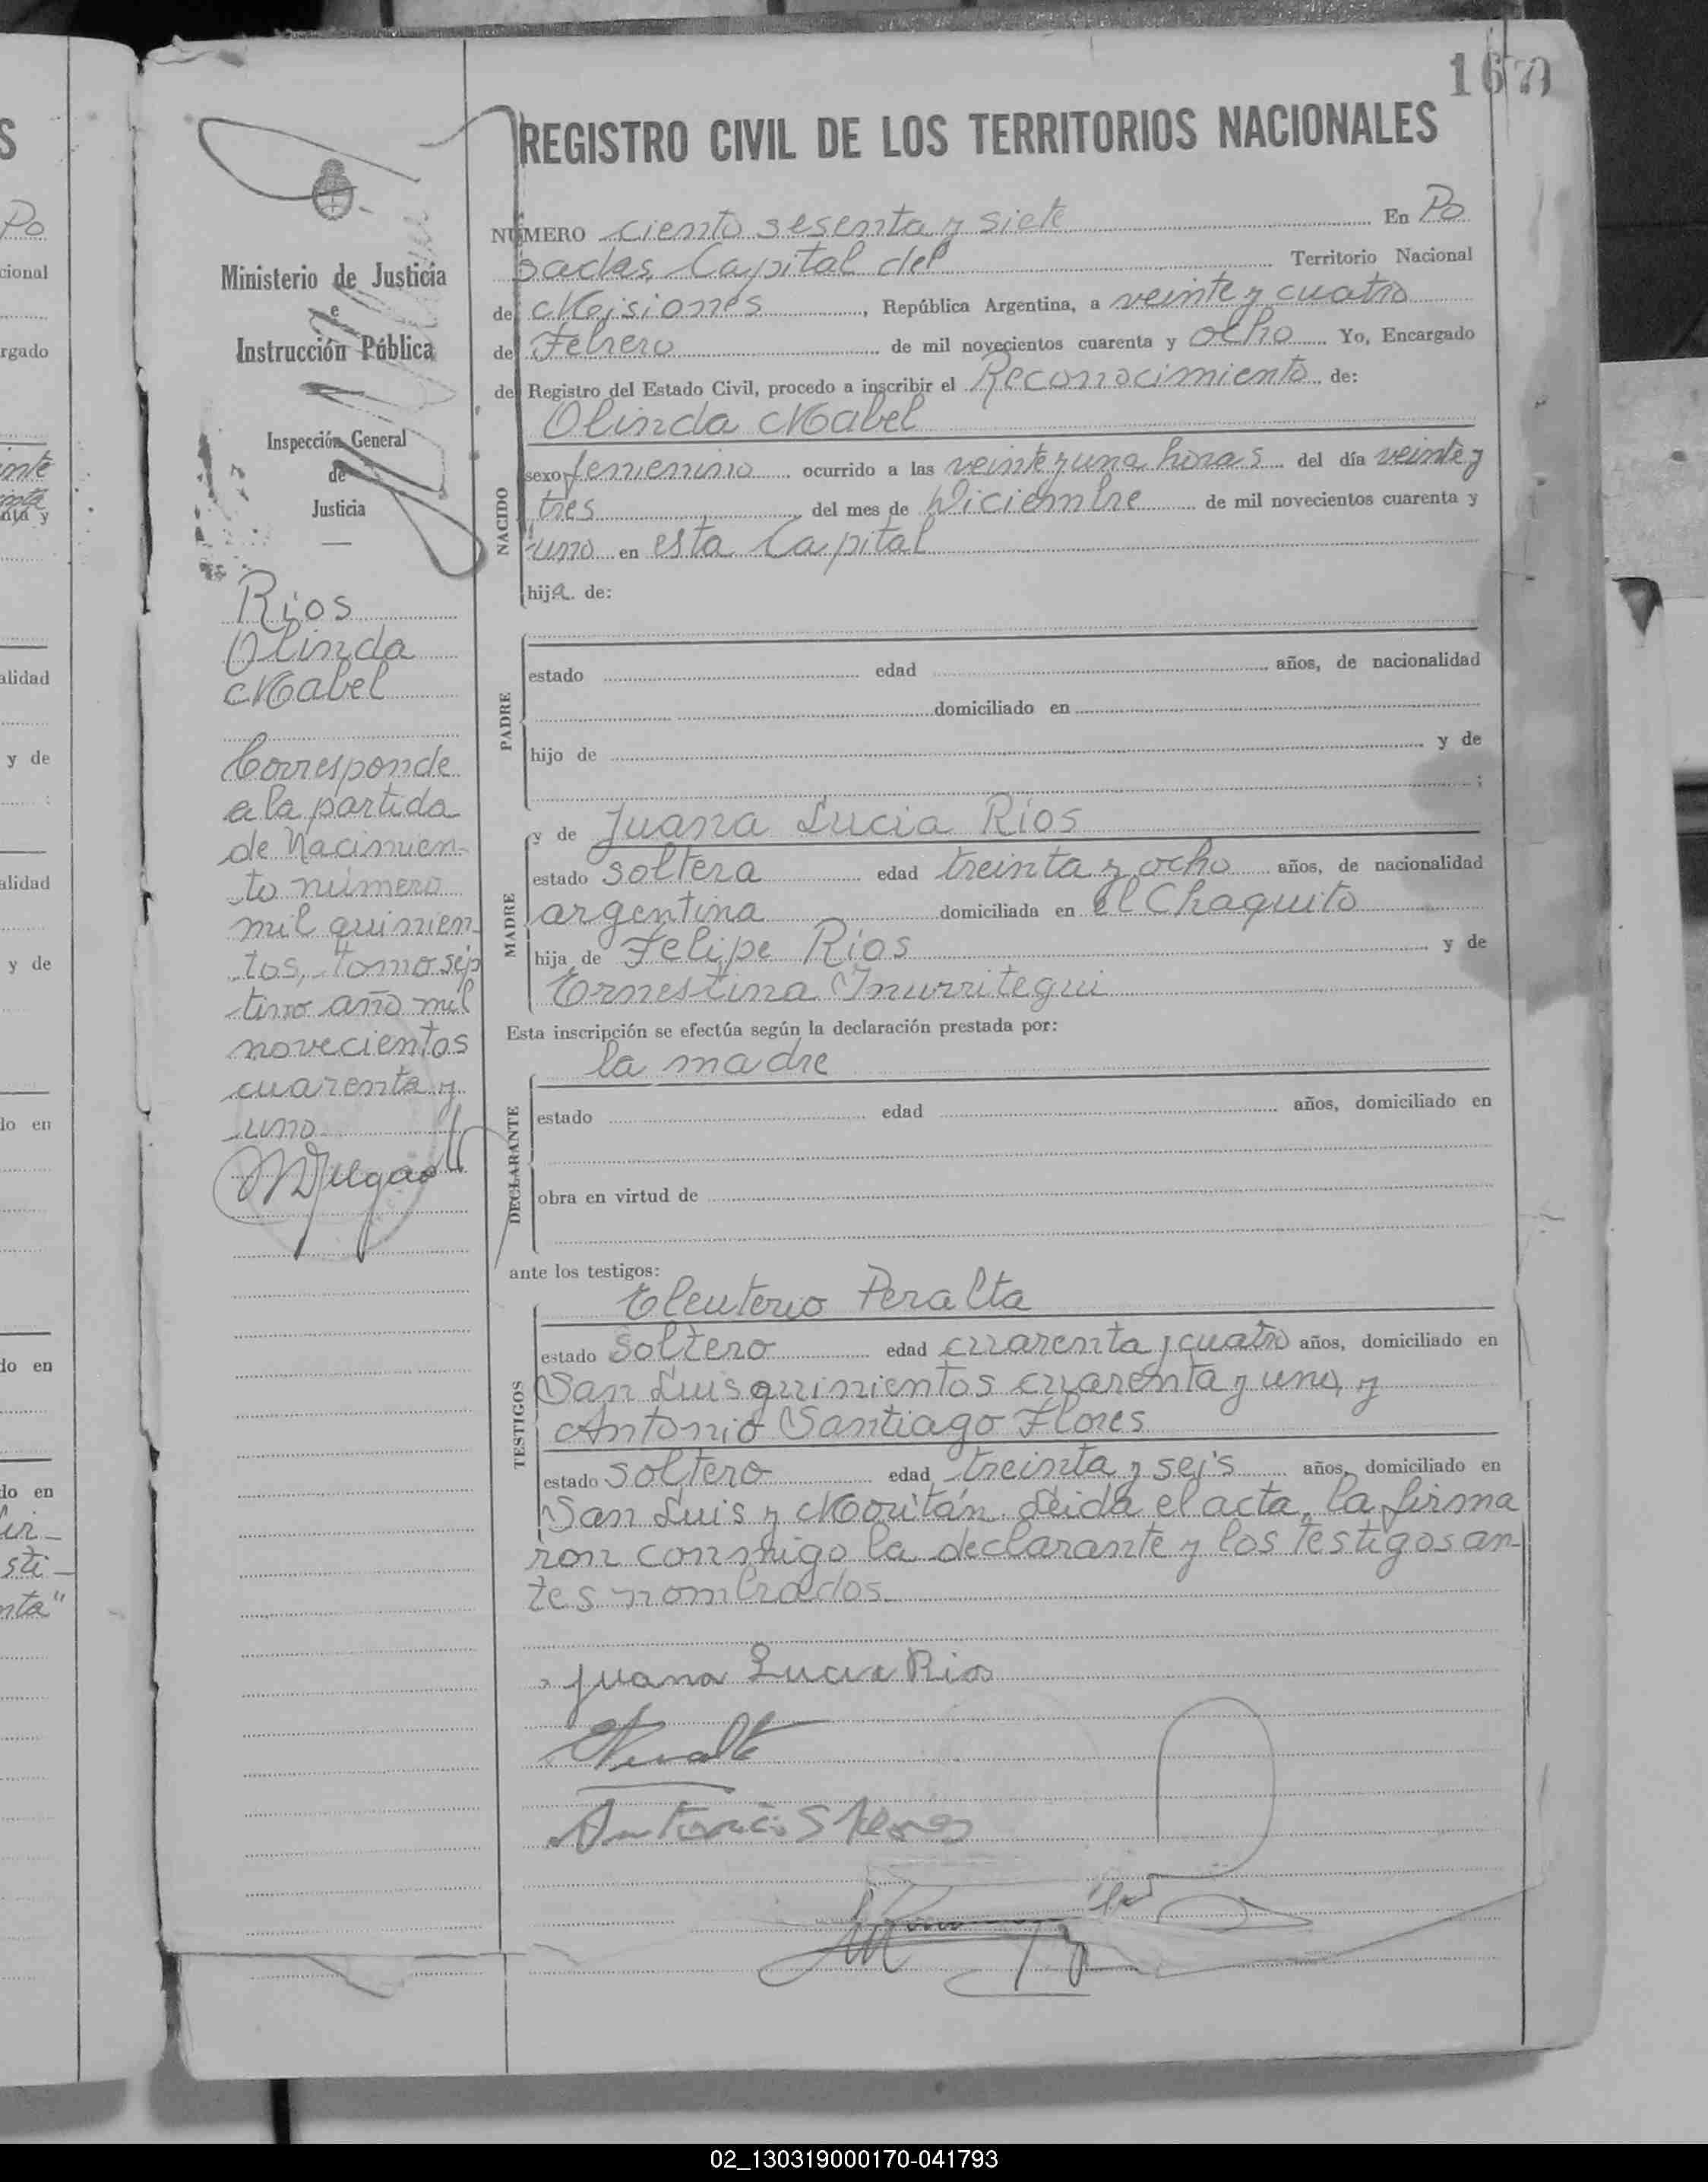 167
REGISTRO CIVIL DE LOS TERRITORIOS NACIONALES
Ministerio de Justicia
e
Instrucción Pública
Inspección General
de
Justicia
Rios
Olinda
Mabel
Corresponde
a la partida
de Nacimien-
to número
mil quinien
tos, tomo sép
timo año mil
novecientos
cuarenta y
uno
NÚMERO ciento sesenta y siete En Po
sadas, Capital del Territorio Nacional
de Misiones, República Argentina, a veinte y cuatro
de Febrero de mil novecientos cuarenta y ocho Yo, Encargado
del Registro del Estado Civil, procedo a inscribir el Reconocimiento de:
NACIDO
Olinda Mabel
sexo femenino ocurrido a las veinte y una horas del día veinte y
tres del mes de Diciembre de mil novecientos cuarenta y
uno en esta Capital
hija de:
PADRE
estado edad años, de nacionalidad
domiciliado en
hijo de y de
;
MADRE
y de Juana Lucia Rios
estado soltera edad treinta y ocho años, de nacionalidad
argentina domiciliada en el Chaquito
hija de Felipe Rios y de
Ernestina Inurritegui
Esta inscripción se efectúa según la declaración prestada por:
la madre
DECLARANTE
estado edad años, domiciliado en
obra en virtud de
ante los testigos:
TESTIGOS
Eleuterio Peralta
estado soltero edad cuarenta y cuatro años, domiciliado en
San Luis quinientos cuarenta y uno, y
Antonio Santiago Flores
estado soltero edad treinta y seis años, domiciliado en
San Luis y Moritán. Leida el acta, la firma
ron conmigo la declarante y los testigos an-
tes nombrados.
Juana Lucia Rios
EPeralta
Antonio S Flores
02_130319000170-041793